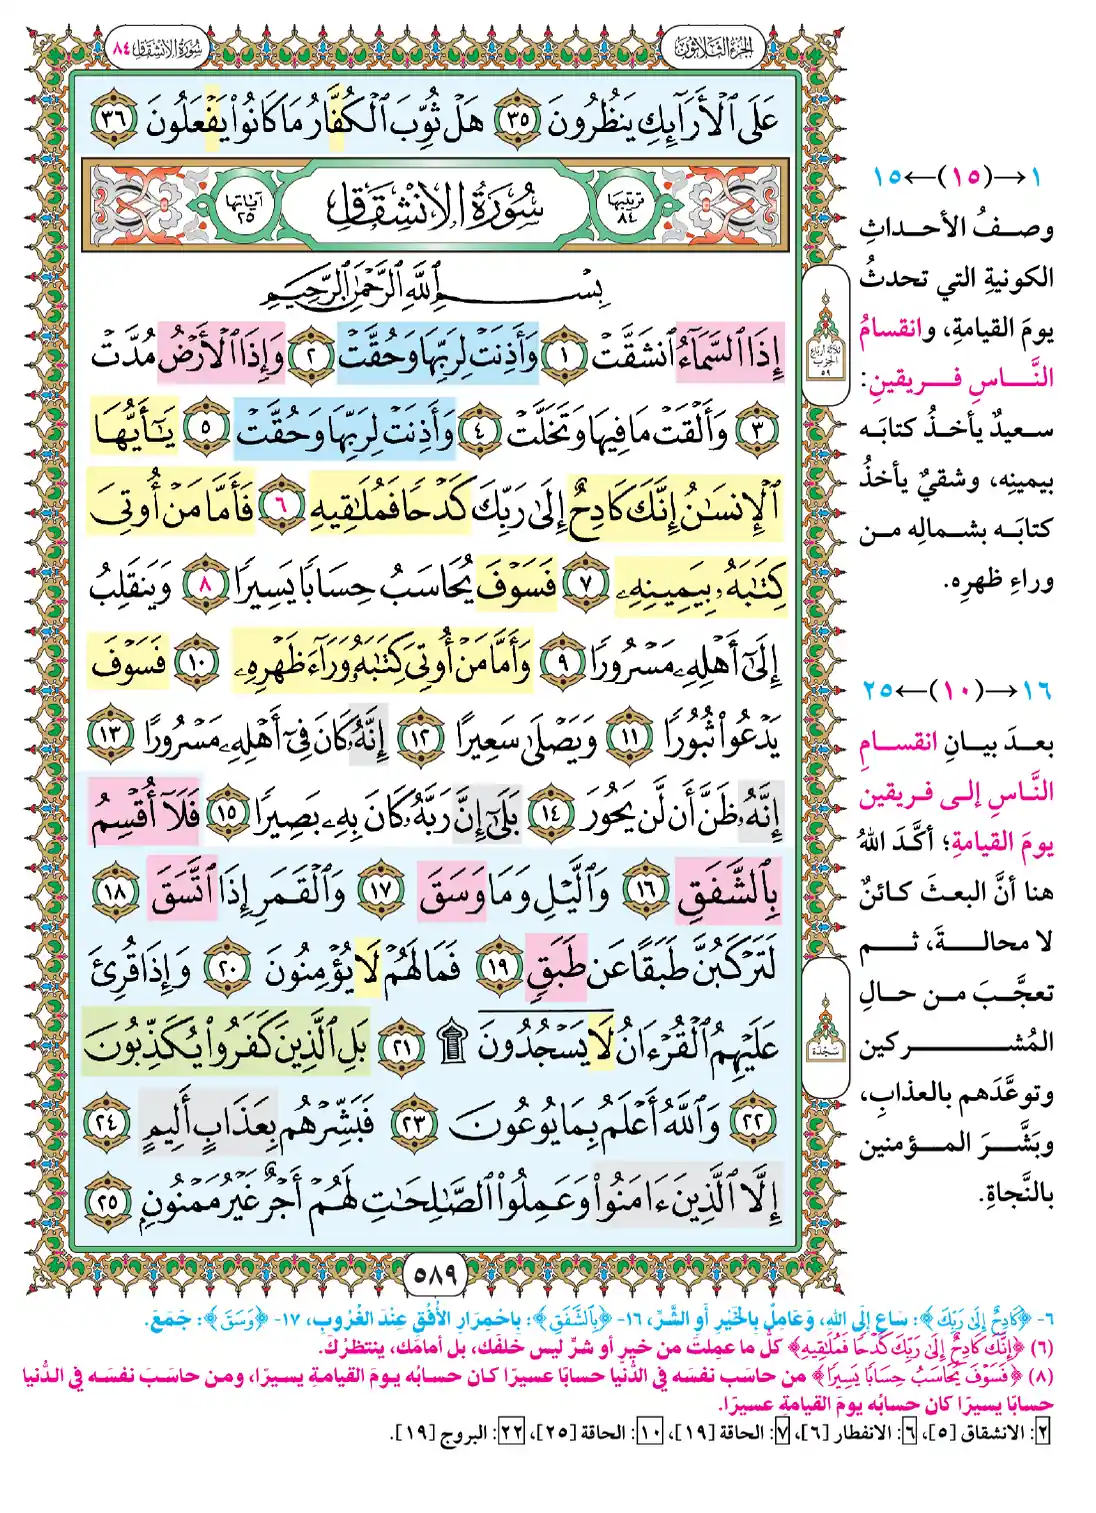 الجزء الثلاثون
سورة الانشقاق ٨٤
عَلَى ٱلْأَرَآئِكِ يَنظُرُونَ ٣٥ هَلْ ثُوِّبَ ٱلْكُفَّارُ مَا كَانُوا۟ يَفْعَلُونَ ٣٦
ترتيبها ٨٤ سُورَةُ الانشقاق آياتها ٢٥
بِسْمِ ٱللَّهِ ٱلرَّحْمَٰنِ ٱلرَّحِيمِ
إِذَا ٱلسَّمَآءُ ٱنشَقَّتْ ١ وَأَذِنَتْ لِرَبِّهَا وَحُقَّتْ ٢ وَإِذَا ٱلْأَرْضُ مُدَّتْ
٣ وَأَلْقَتْ مَا فِيهَا وَتَخَلَّتْ ٤ وَأَذِنَتْ لِرَبِّهَا وَحُقَّتْ ٥ يَٰٓأَيُّهَا
ٱلْإِنسَٰنُ إِنَّكَ كَادِحٌ إِلَىٰ رَبِّكَ كَدْحًا فَمُلَٰقِيهِ ٦ فَأَمَّا مَنْ أُوتِىَ
كِتَٰبَهُۥ بِيَمِينِهِۦ ٧ فَسَوْفَ يُحَاسَبُ حِسَابًا يَسِيرًا ٨ وَيَنقَلِبُ
إِلَىٰٓ أَهْلِهِۦ مَسْرُورًا ٩ وَأَمَّا مَنْ أُوتِىَ كِتَٰبَهُۥ وَرَآءَ ظَهْرِهِۦ ١٠ فَسَوْفَ
يَدْعُوا۟ ثُبُورًا ١١ وَيَصْلَىٰ سَعِيرًا ١٢ إِنَّهُۥ كَانَ فِىٓ أَهْلِهِۦ مَسْرُورًا ١٣
إِنَّهُۥ ظَنَّ أَن لَّن يَحُورَ ١٤ بَلَىٰٓ إِنَّ رَبَّهُۥ كَانَ بِهِۦ بَصِيرًا ١٥ فَلَآ أُقْسِمُ
بِٱلشَّفَقِ ١٦ وَٱلَّيْلِ وَمَا وَسَقَ ١٧ وَٱلْقَمَرِ إِذَا ٱتَّسَقَ ١٨
لَتَرْكَبُنَّ طَبَقًا عَن طَبَقٍ ١٩ فَمَا لَهُمْ لَا يُؤْمِنُونَ ٢٠ وَإِذَا قُرِئَ
عَلَيْهِمُ ٱلْقُرْءَانُ لَا يَسْجُدُونَ ۩ ٢١ بَلِ ٱلَّذِينَ كَفَرُوا۟ يُكَذِّبُونَ
٢٢ وَٱللَّهُ أَعْلَمُ بِمَا يُوعُونَ ٢٣ فَبَشِّرْهُم بِعَذَابٍ أَلِيمٍ ٢٤
إِلَّا ٱلَّذِينَ ءَامَنُوا۟ وَعَمِلُوا۟ ٱلصَّٰلِحَٰتِ لَهُمْ أَجْرٌ غَيْرُ مَمْنُونٍۭ ٢٥
٥٨٩
ثلاثة أرباع
الحزب
٥٩
سجدة
١→(١٥)←١٥
وصفُ الأحداثِ
الكونيةِ التي تحدثُ
يومَ القيامةِ، وانقسامُ
النَّاسِ فريقينِ:
سعيدٌ يأخذُ كتابَه
بيمينِه، وشقيٌ يأخذُ
كتابَه بشمالِه من
وراءِ ظهرِه.
١٦→(١٠)←٢٥
بعدَ بيانِ انقسامِ
النَّاسِ إلى فريقين
يومَ القيامةِ؛ أكَّدَ اللهُ
هنا أنَّ البعثَ كائنٌ
لا محالةَ، ثم
تعجَّبَ من حالِ
المُشركين
وتوعَّدَهم بالعذابِ،
وبَشَّرَ المؤمنين
بالنَّجاةِ.
٦- ﴿كَادِحٌ إِلَىٰ رَبِّكَ﴾: سَاعٍ إِلَى اللهِ، وَعَامِلٌ بِالخَيْرِ أَوِ الشَّرِّ، ١٦- ﴿بِٱلشَّفَقِ﴾: بِاحْمِرَارِ الأُفُقِ عِنْدَ الغُرُوبِ، ١٧- ﴿وَسَقَ﴾: جَمَعَ.
(٦) ﴿إِنَّكَ كَادِحٌ إِلَىٰ رَبِّكَ كَدْحًا فَمُلَٰقِيهِ﴾ كلُّ ما عملتَ من خيرٍ أو شرٍّ ليس خلفَك، بل أمامَك، ينتظرُكَ.
(٨) ﴿فَسَوْفَ يُحَاسَبُ حِسَابًا يَسِيرًا﴾ من حاسَب نفسَه في الدُّنيا حسابًا عسيرًا كان حسابُه يومَ القيامةِ يسيرًا، ومن حاسَبَ نفسَه في الدُّنيا
حسابًا يسيرًا كان حسابُه يومَ القيامةِ عسيرًا.
٢: الانشقاق [٥]، ٦: الانفطار [٦]، ٧: الحاقة [١٩]، ١٠: الحاقة [٢٥]، ٢٢: البروج [١٩].